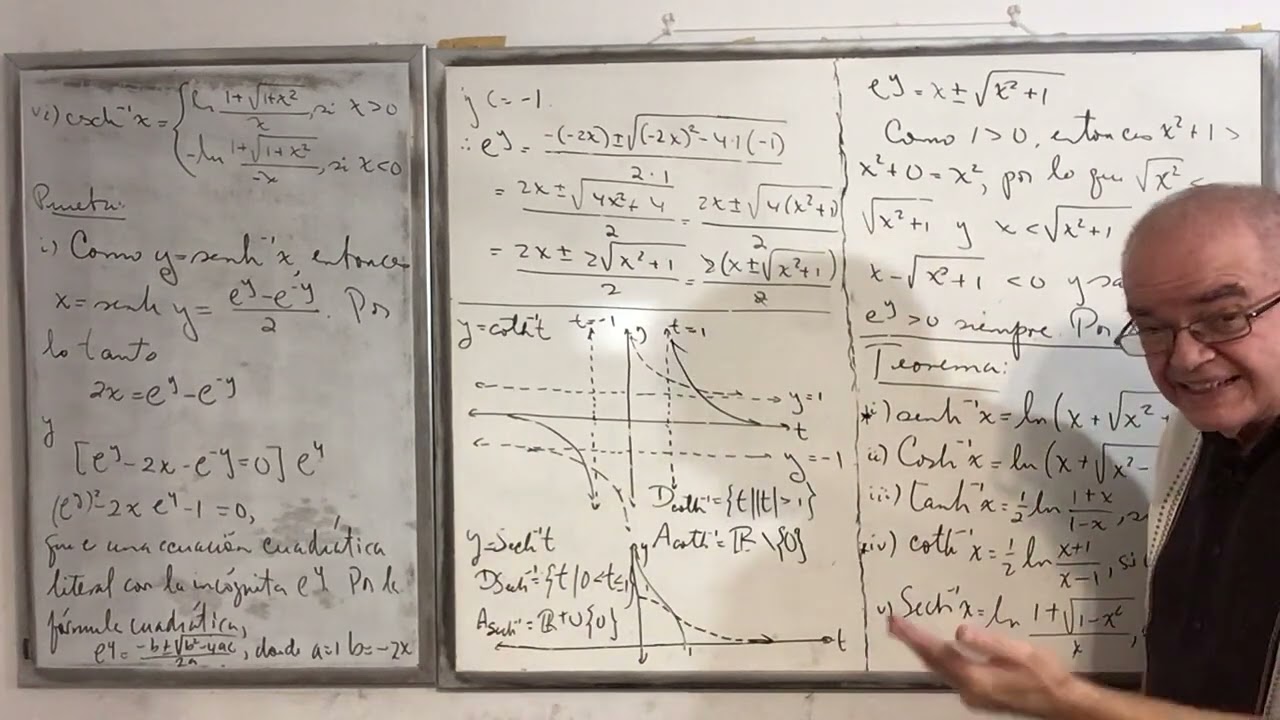 vi) csch⁻¹x = { ln (1+√(1+x²))/x, si x>0
-ln (1+√(1+x²))/-x, si x<0
Prueba:
i) Como y=senh⁻¹x, entonces
x=senh y = (e^y-e^-y)/2. Por
lo tanto
2x=e^y-e^-y
y
[e^y-2x-e^-y=0]e^y
(e^y)²-2x e^y-1=0,
que e una ecuación cuadrática
literal con la incógnita e^y. Por la
fórmula cuadrática,
e^y = (-b±√(b²-4ac))/2a, donde a=1 b=-2x
y c=-1.
∴ e^y = (-(-2x)±√((-2x)²-4·1(-1)))/(2·1)
= (2x±√(4x²+4))/2 = (2x±√(4(x²+1)))/2
= (2x±2√(x²+1))/2 = (2(x±√(x²+1)))/2
y=coth⁻¹t t=-1 y t=1
y=1
t
y=-1
D coth⁻¹={t||t|>1}
A coth⁻¹=ℝ\{0}
y=sech⁻¹t y
D sech⁻¹={t|0<t≤1}
A sech⁻¹=ℝ+∪{0}
1 t
e^y=x±√(x²+1)
Como 1>0, entonces x²+1>
x²+0=x², por lo que √x²<
√(x²+1) y x<√(x²+1)
x-√(x²+1)<0 y
e^y>0 siempre. Por
Teorema:
*i) senh⁻¹x=ln(x+√(x²+
ii) Cosh⁻¹x=ln(x+√(x²-
iii) tanh⁻¹x=½ln (1+x)/(1-x),
iv) coth⁻¹x=½ln (x+1)/(x-1), si
v) Sech⁻¹x=ln (1+√(1-x²))/x,